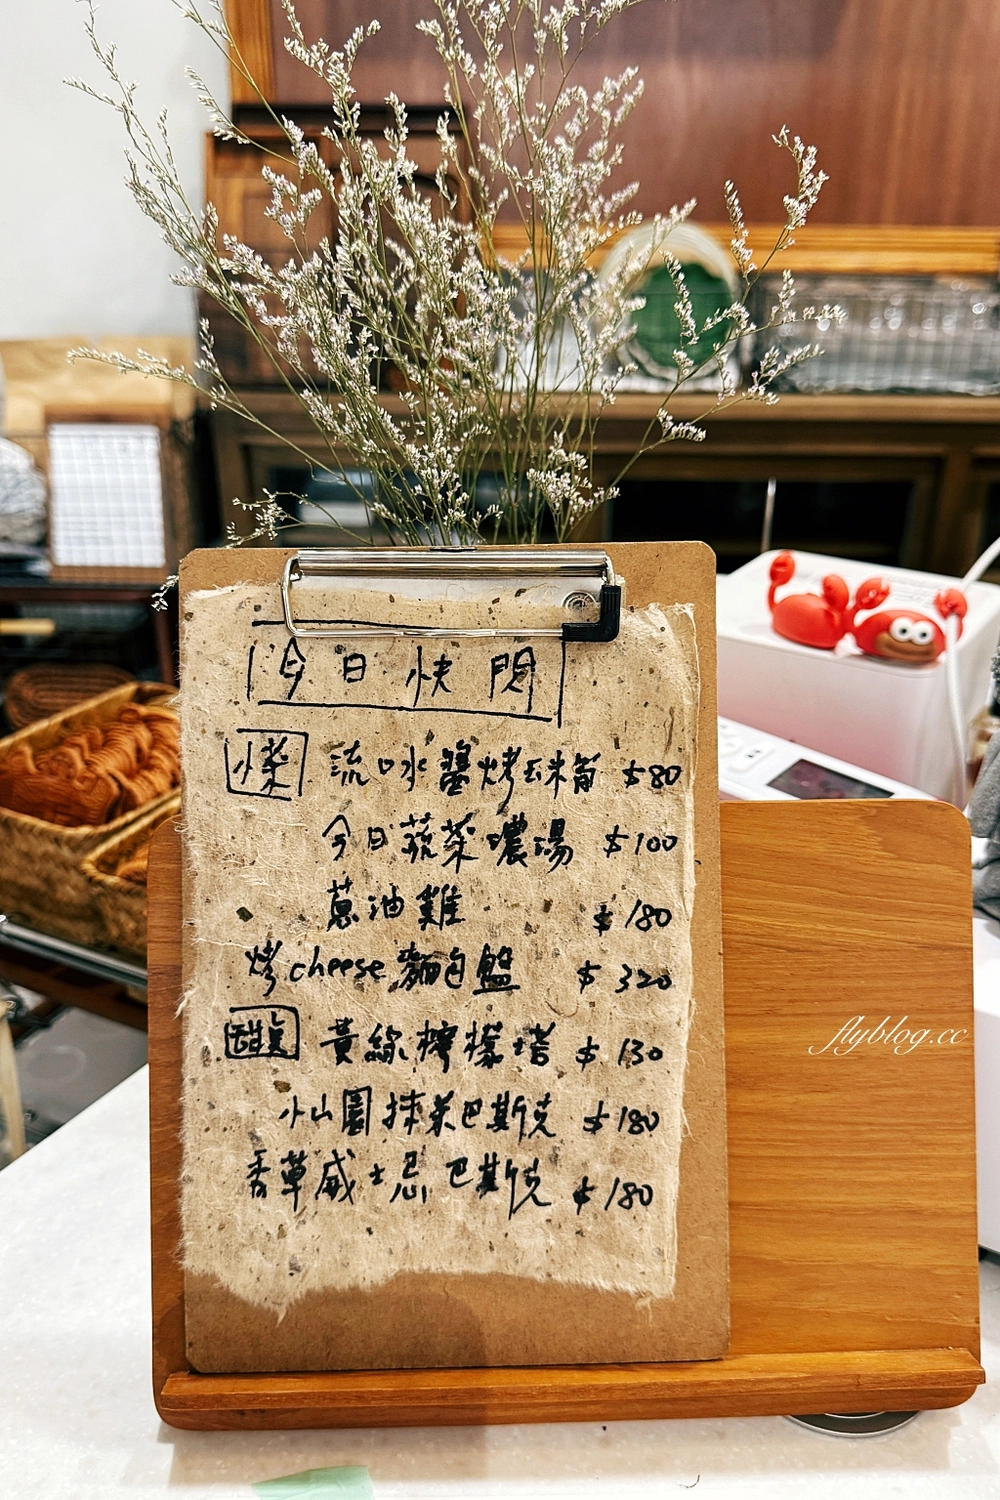 今日快閃
小菜 流口水醬烤玉米筍 $80
今日蔬菜濃湯 $100
蔥油雞 $180
烤cheese麵包盤 $320
甜點 黃綠檸檬塔 $130
小山園抹茶巴斯克 $180
香草威士忌巴斯克 $180
flyblog.cc